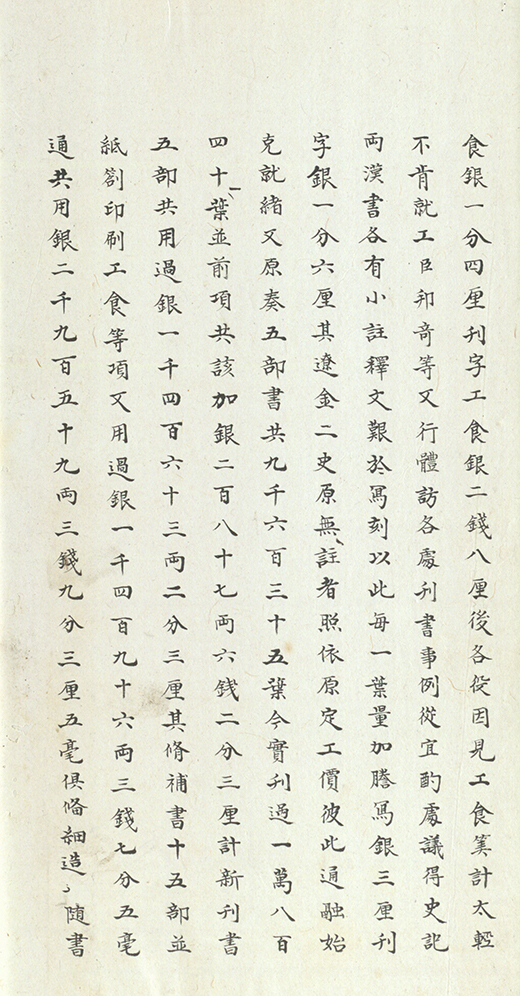 食銀一分四厘刊字工食銀二錢八厘後各役因見工食筭計太輕
不肯就工臣邦竒等又行體訪各處刊書事例從宜酌處議得史記
両漢書各有小註釋文艱於冩刻以此每一葉量加謄冩銀三厘刋
字銀一分六厘其遼金二史原無註者照依原定工價彼此通融始
克就緒又原奏五部書共九千六百三十五葉今實刋過一萬八百
四十一葉並前項共該加銀二百八十七両六錢二分三厘計新刋書
五部共用過銀一千四百六十三両二分三厘其脩補書十五部並
紙劄印刷工食等項又用過銀一千四百九十六両三錢七分五毫
通共用銀二千九百五十九両三錢九分三厘五毫俱脩細造隨書